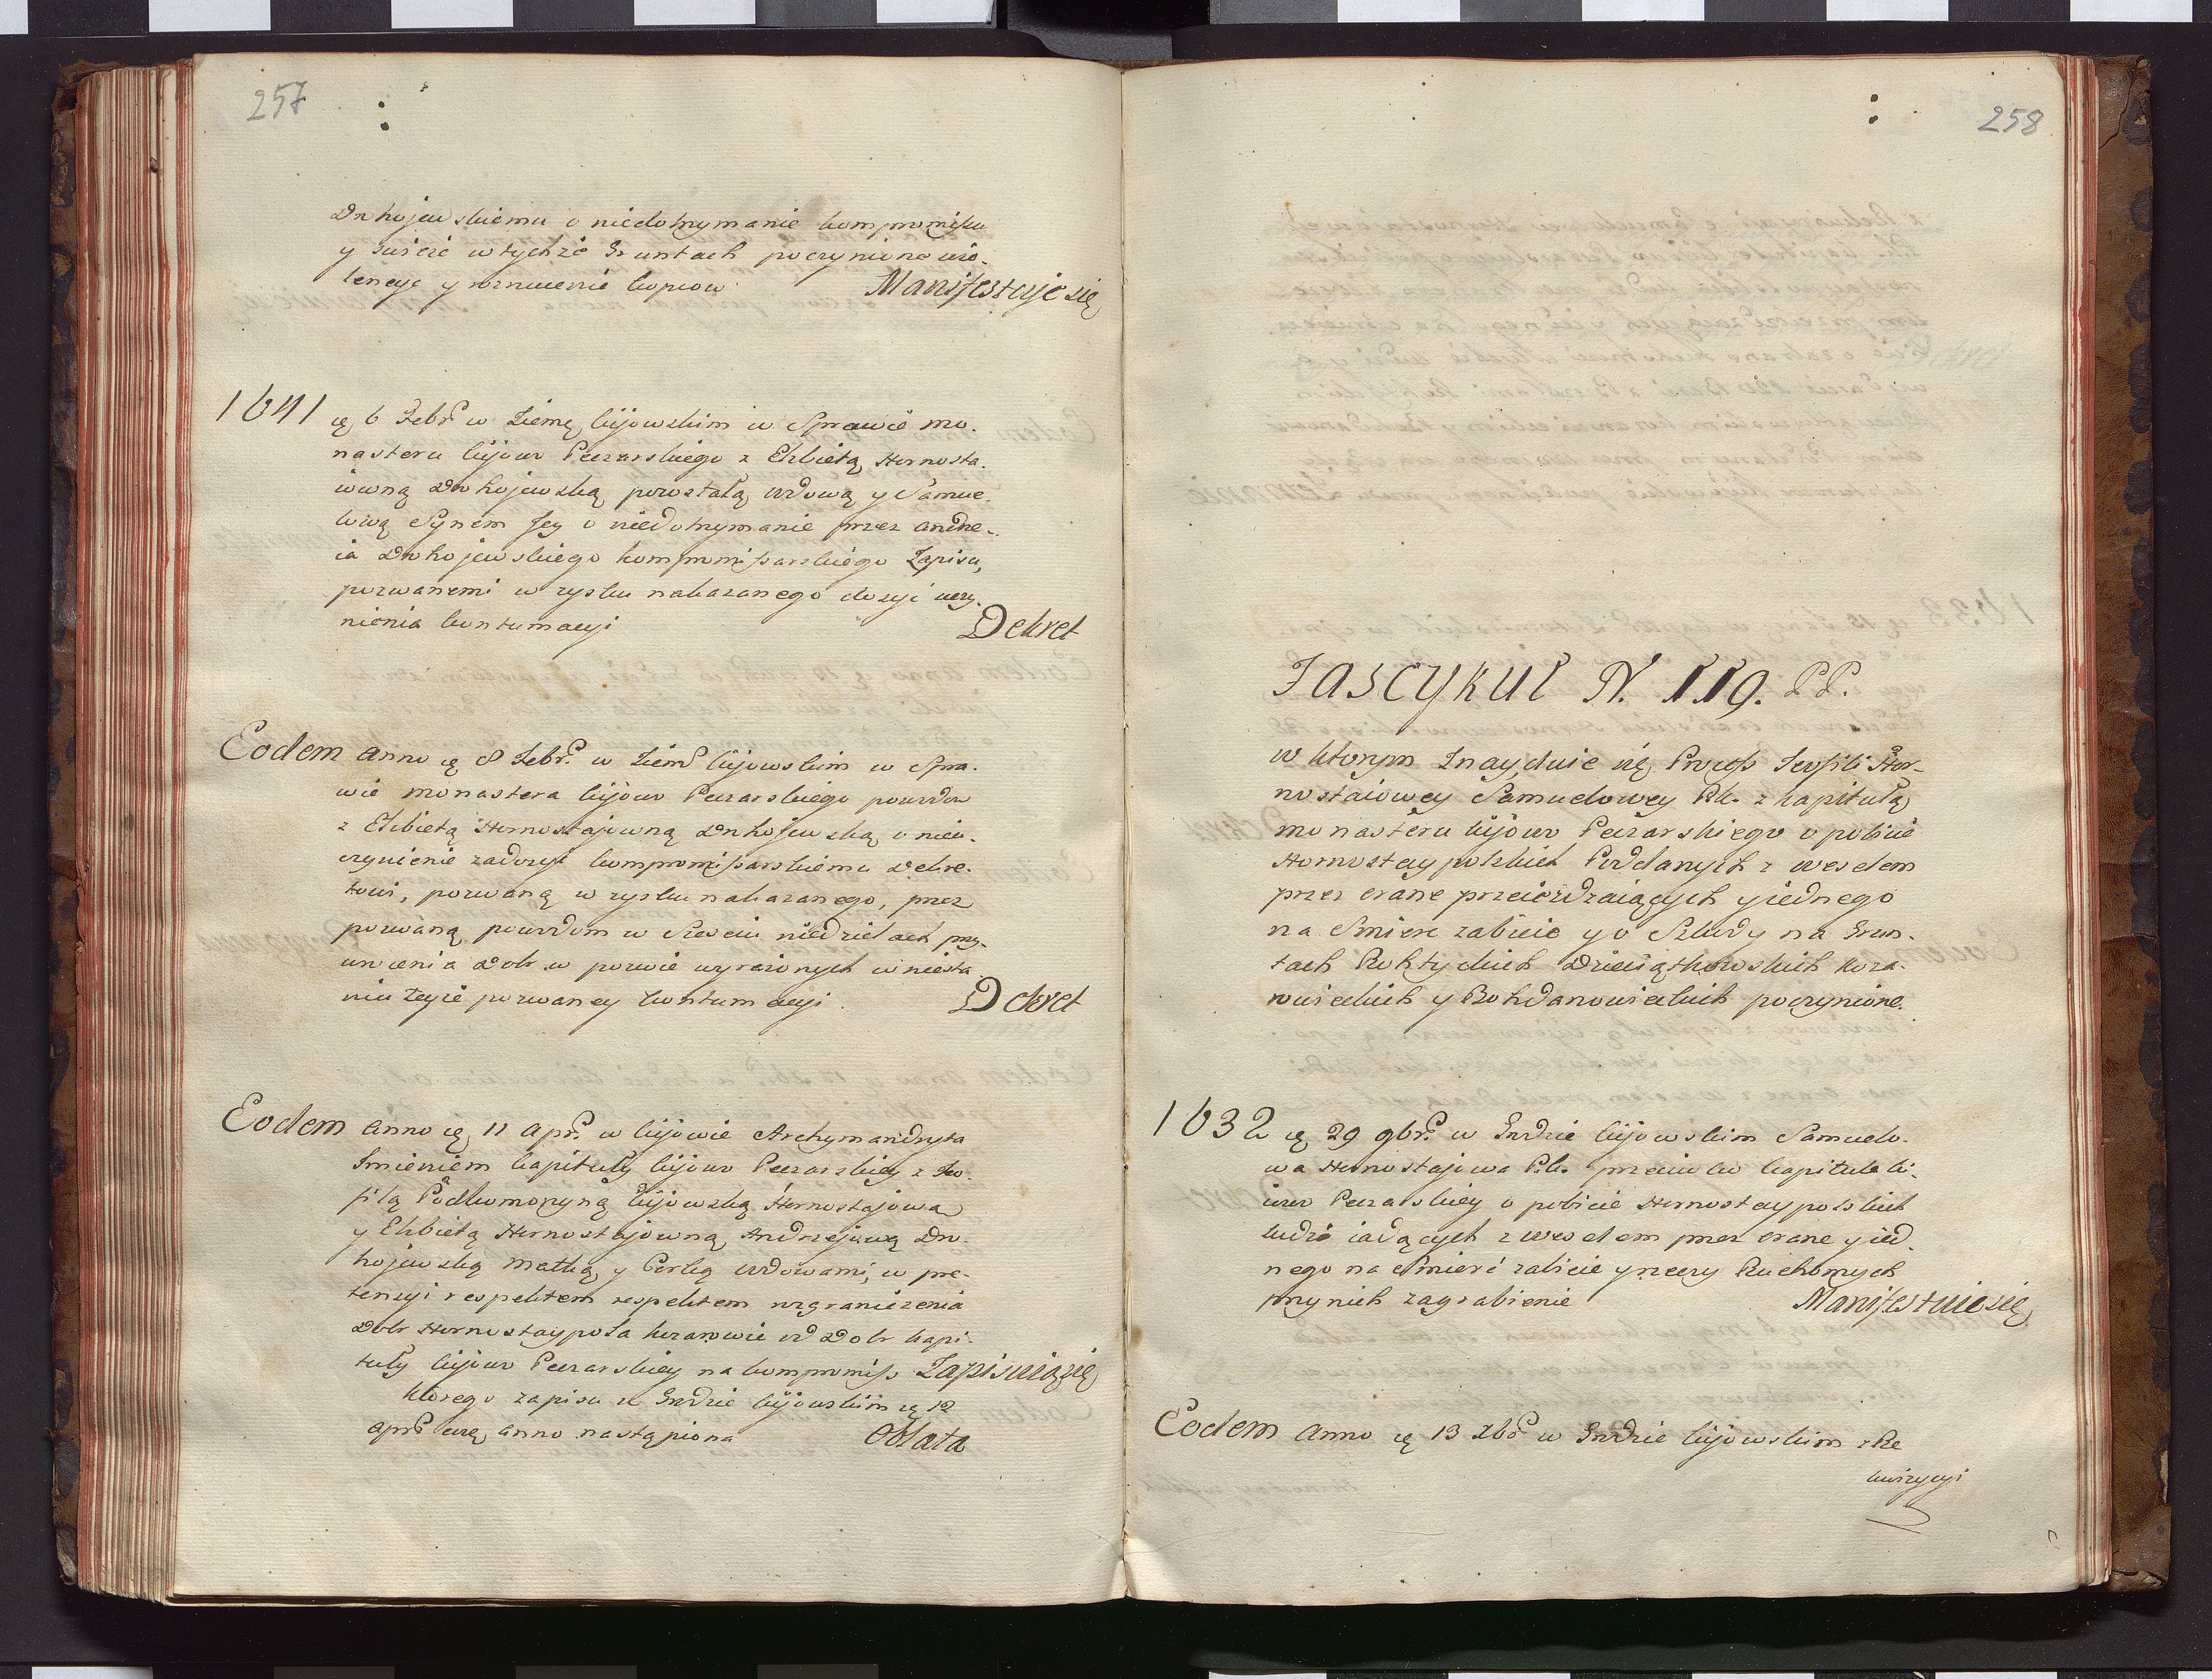 257
Drohojewskiemu o niedotrzymanie kompromissu
y szeście w tychże Gruntach poczynione wio-
lencye y rozrucenie kopcow Manifestuje się
1641 ię 6 Febr. w Ziems. kijowskim w Sprawie mo-
nasteru kijowo Peczarskiego z Elżbietą Hornosta-
iowną Drohojewską pozostałą wdową y Samue-
lową Synem Jey o niedotrzymanie przez Andrze-
ia Drohojewskiego kompromissarskiego Zapisu,
pozwanemi w zysku nakazanego dosyć uczy-
nienia kontumacyi Dekret
Eodem Anno ię 8 Febr. w Ziems. kijowskim w Spra-
wie monastera kijowo Peczarskiego powodow
z Elżbietą Hornostajowną Drohojewską o nieu-
czynienie zadosyć kompromissarskiemu Dekre-
towi, pozwaną w zysku nakazanego, przez
pozwaną powodom w Sześciu niedzielach przy-
wrocenia Dobr w pozwie wyrażonych w niesta-
niu teyże pozwaney kontumacyi. Dekret
Eodem Anno ię 11 Apr. w kijowie Archymandryta
Imieniem kapituły kijowo Peczarskiey z Teo-
filą Podkomorzyną kijowską Hornostajową
y Elżbietą Hornostajowną Andrzejową Dro-
hojewską Matką y Corką wdowami, w pre-
tensyi respektem respektem rozgraniczenia
Dobr Hornostaypola kozarowic od Dobr kapi-
tuły kijowo Peczarskiey na kompromiss Zapisuią się
ktorego zapisu w Grodzie kijowskim ię 12
Apr. eoq. anno nastąpiona Oblata
258
Fascykuł N. 119. PP.
w ktorym Znayduie się Process Teofili Hor-
nostaiowey Samuelowey Pk. z kapitułą
monasteru kijowo Peczarskiego o pobicie
Hornostaypolskich Poddanych z weselem
przez Orane przeieżdzaiących y iednego
na Smierc zabicie y o Szkody na Grun-
tach Roktyckich Dzieciątkowskich koza-
rowickich y Bohdanowieckich poczynione.
1632 ię 29 9br. w Grodzie kijowskim Samuelo-
wa Hornostajowa Pk. przeciwko kapitule ki-
iowo Peczarskiey o pobicie Hornostaypolskich
ludzi iadących z weselem przez Orane y ied-
nego na Smierć zabicie y rzeczy Ruchomych
przy nich zagrabienie Manifestuie się
Eodem Anno ię 13 Xbr. w Grodzie kijowskim z Re
kwizycyi